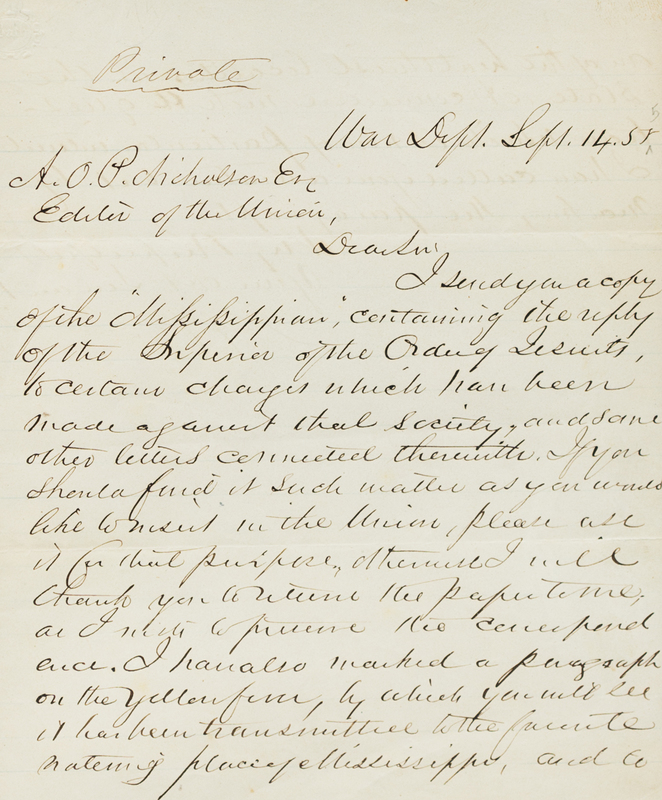 Private
War Dept. Sept. 14. 55
A. O. P. Nicholson Esq
Editor of the Union,
Dear Sir,
I send you a copy
of the "Mississippian", containing the reply
of the Superior of the Order of Jesuits,
to certain charges which have been
made against that society, and some
other letters connected therewith. If you
should find it such matter as you would
like to insert in the Union, please use
it for that purpose, otherwise I will
thank you to return the paper to me,
as I wish to preserve the correspond
ence. I have also marked a paragraph
on the Yellow fever, by which you will see
it has been transmitted to the favorite
watering place of Mississippi, and so